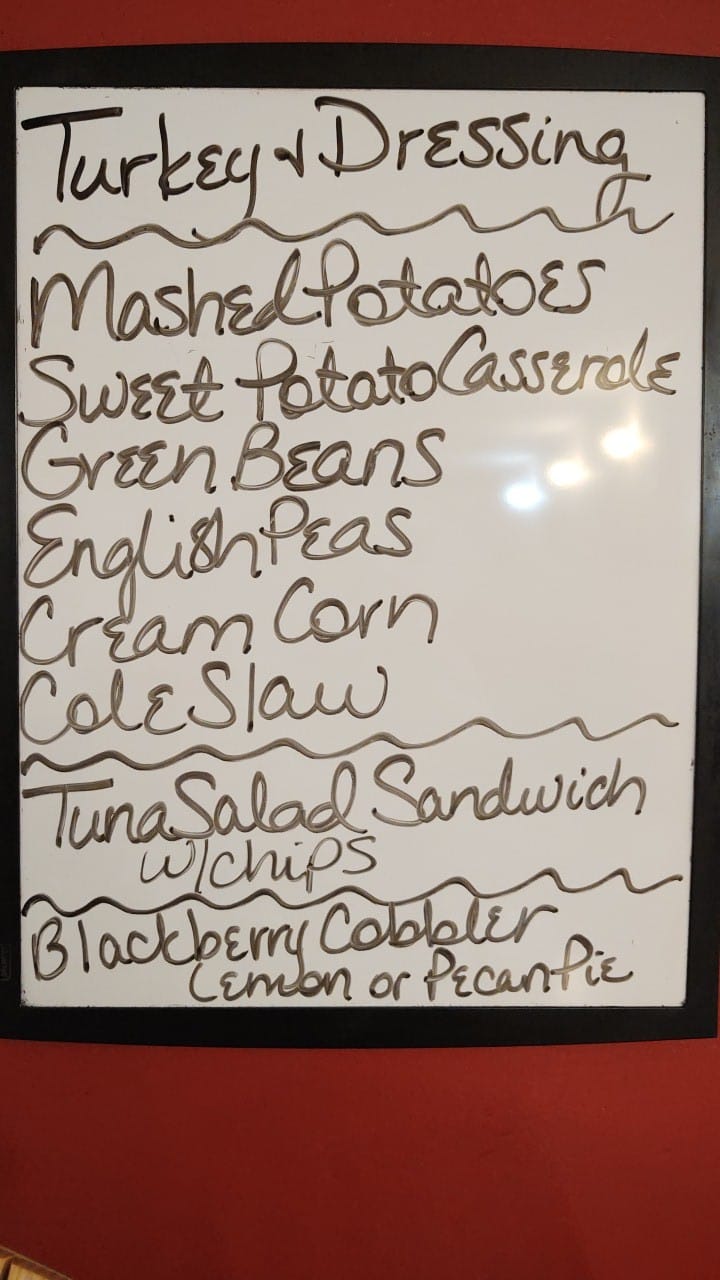 Turkey & Dressing
Mashed Potatoes
Sweet Potato Casserole
Green Beans
English Peas
Cream Corn
Cole Slaw
Tuna Salad Sandwich
w/chips
Blackberry Cobbler
Lemon or Pecan Pie